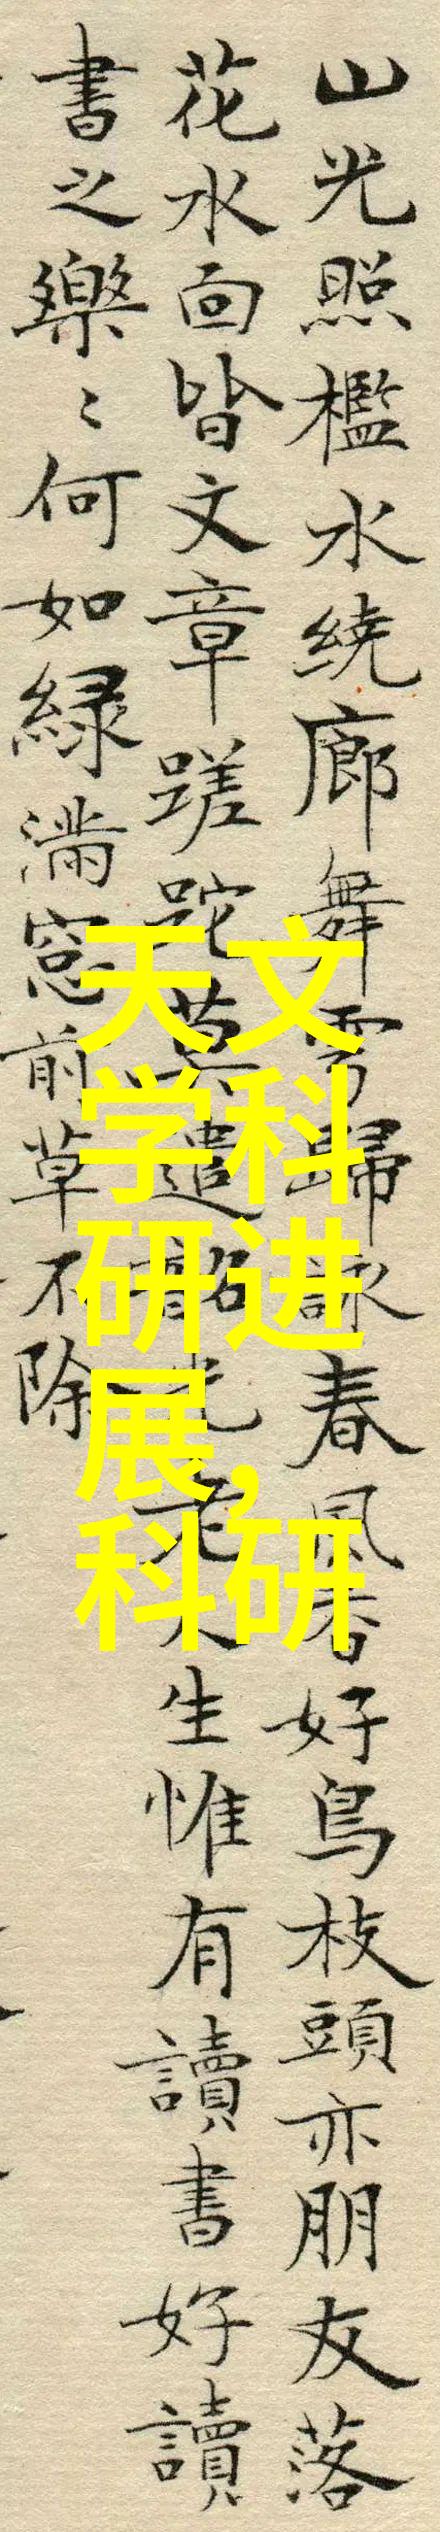 山光照檻水繞廊舞雩歸詠春風香好鳥枝頭亦朋友落
花水面皆文章蹉跎莫遣韶光老人生惟有讀書好讀
書之樂〻何如綠滿窓前草不除
天文
学科
研进
展,
科研